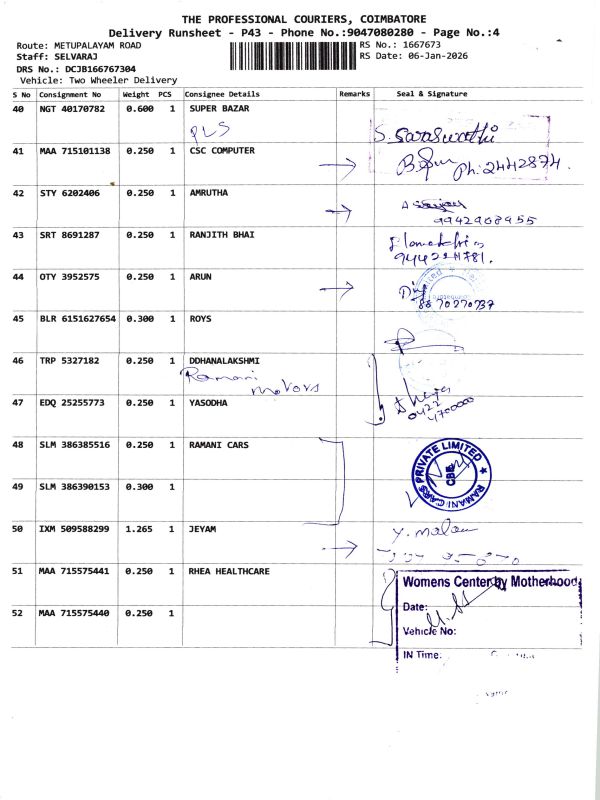 THE PROFESSIONAL COURIERS, COIMBATORE
Delivery Runsheet - P43 - Phone No.:9047080280 - Page No.:4
Route: METUPALAYAM ROAD
RS No.: 1667673
Staff: SELVARAJ
RS Date: 06-Jan-2026
DRS No.: DCJB166767304
Vehicle: Two Wheeler Delivery
S No Consignment No Weight PCS Consignee Details Remarks Seal & Signature
40 NGT 40170782 0.600 1 SUPER BAZAR
PLS
S. Saraswathi
41 MAA 715101138 0.250 1 CSC COMPUTER
Ph: 2442874.
42 STY 6202406 0.250 1 AMRUTHA
9942908955
43 SRT 8691287 0.250 1 RANJITH BHAI
44 OTY 3952575 0.250 1 ARUN
45 BLR 6151627654 0.300 1 ROYS
46 TRP 5327182 0.250 1 DDHANALAKSHMI
Ramani
Motors
47 EDQ 25255773 0.250 1 YASODHA
0422
4700000
48 SLM 386385516 0.250 1 RAMANI CARS
RAMANI CARS PRIVATE LIMITED
CBE
49 SLM 386390153 0.300 1
50 IXM 509588299 1.265 1 JEYAM
51 MAA 715575441 0.250 1 RHEA HEALTHCARE
Womens Center by Motherhood
Date:
52 MAA 715575440 0.250 1
Vehicle No:
IN Time: